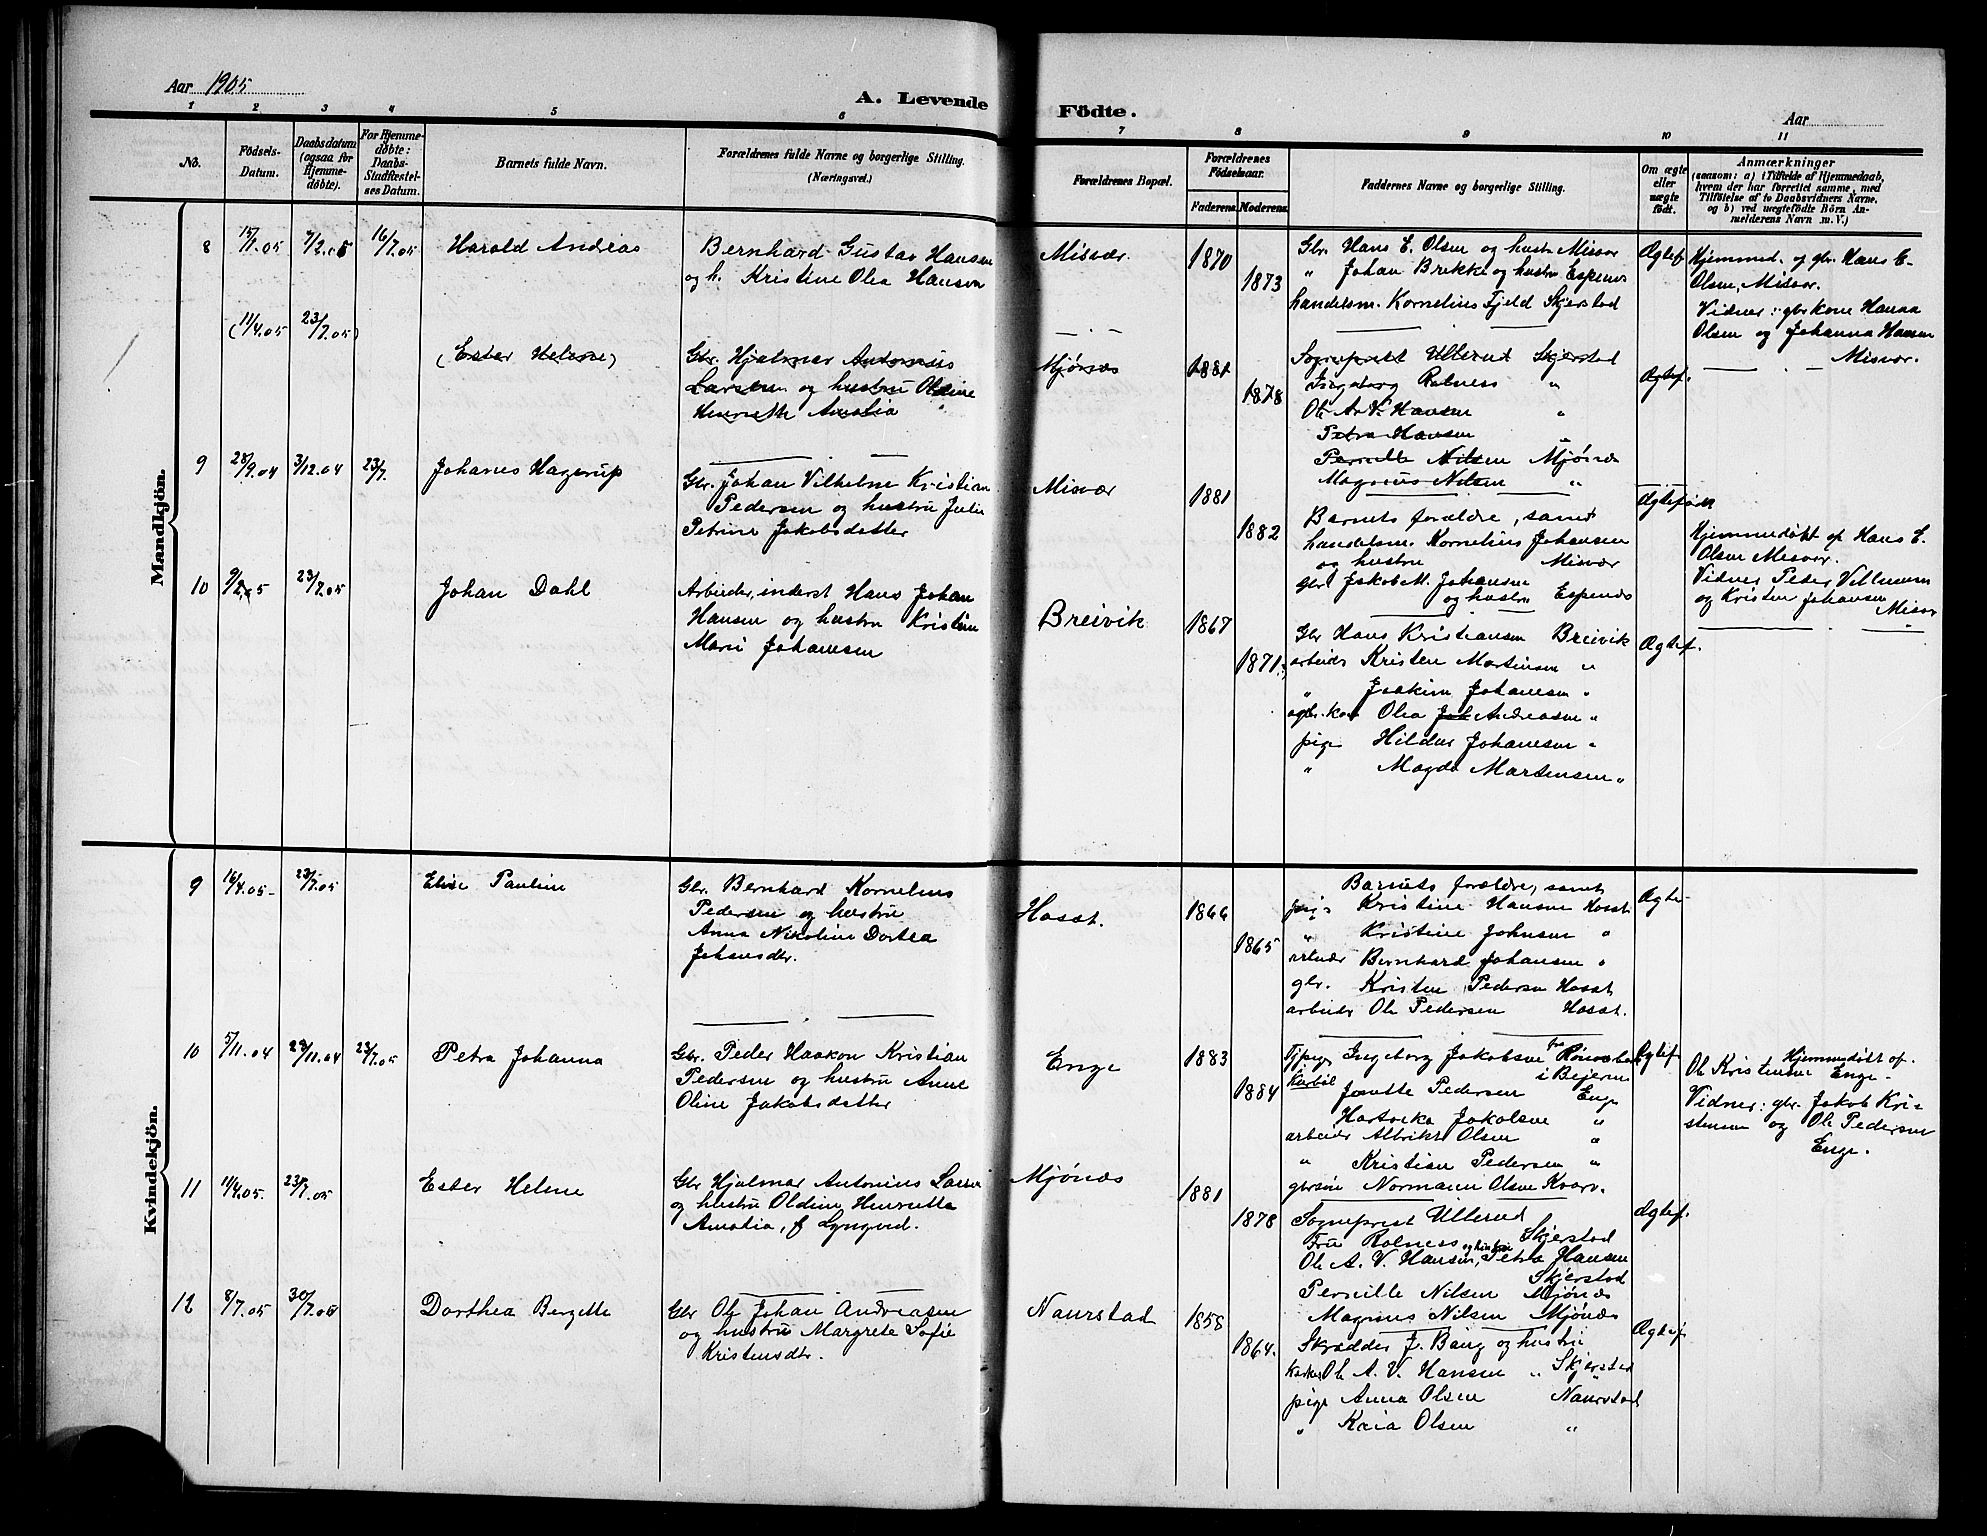 Aar 1905
A. Levende Födte.
Aar
1 2 3 4 5 6 7 8 9 10 11
No.
Födsels-
Datum.
Daabsdatum
(ogsaa for
Hjemme-
döbte).
For Hjemme-
döbte:
Daabs-
Stadfæstel-
ses Datum.
Barnets fulde Navn.
Forældrenes fulde Navne og borgerlige Stilling.
(Næringsvei.)
Forældrenes Bopæl.
Forældrenes
Födselsaar.
Faderens. Moderens.
Faddernes Navne og borgerlige Stilling.
Om ægte
eller
uægte
födt.
Anmærkninger
(saasom: a) i Tilfælde af Hjemmedaab,
hvem der har forrettet samme, med
Tilföielse af to Daabsvidners Navne,
og b) ved uægtefödte Börn An-
melderens Navn m. V.)
Mandkjön.
8 15/1.05 7/2.05 16/7.05 Harald Andreas
Bernhard Gustav Hansen
og h. Kristine Olea Hansen
Misvær.
1870
1873
Gbr. Hans E. Olsen og hustr Misvær
" Johan Brekke og hustru Espenes
handelsm. Kornelius Fjeld Skjerstad
Ægtef.
Hjemmed. af gbr. Hans E.
Olsen, Misvær.
Vidner: gbrkone Hanna
Olsen og Johanna Hansen
Misvær.
(11/4.05 23/7.05)
(Ester Helene)
Gbr. Hjalmar Antonius
Larsen og hustru Oldine
Henriette Amalia
Mjönæs
1881
1878
Sogneprest Ullerud Skjerstad
Ingeborg Rolness "
Ole A. V. Hansen "
Petra Hansen
Pernille Nilsen Mjönæs
Magnus Nilsen "
Ægtef.
9 28/9.04 3/12.04 23/7. Johanes Hagerup
Gbr. Johan Vilhelm Kristian
Pedersen og hustru Julie
Petrine Jakobsdatter
Misvær
1881
1882
Barnets forældre, samt
handelsm. Kornelius Johansen
og hustru Misvær
Gbr Jakob M. Johansen
og hustru Espenes
Ægtefödt
Hjemmedöbt af Hans E.
Olsen Misvær.
Vidner Peder Villumsen
og Kristen Johansen
Misvær
10 9/2.05 23/7.05 Johan Dahl
Arbeider, inderst Hans Johan
Hansen og hustru Kristine
Marie Johansen
Breivik
1867
1871.
Gbr Hans Kristiansen Breivik
arbeider Kristen Martinsen "
" Joakim Johansen "
gbr. kone Olea Joh Andreasen "
pige Hildur Johansen "
" Magda Martensen "
Ægtef.
Kvindekjön.
9 16/4.05 23/7.05 Elise Pauline
Gbr. Bernhard Kornelius
Pedersen og hustru
Anna Nikoline Dortea
Johansdtr.
Hosst.
1866
1865
Barnets forældre, samt
pige Kristine Hansen Hosst
" Kristine Johnsen "
arbeider Bernhard Johansen "
gbr. Kristen Pedersen Hosst
arbeider Ole Pedersen Hosst.
Ægte-
10 5/11.04 29/11.04 23/7.05 Petra Johanna
Gbr. Peder Haakon Kristian
Pedersen og hustru Anne
Oline Jakobsdatter
Enge
1883
1884
Tjpige Ingeborg Jakobsen
i Bejern
Jonette Pedersen Enge
Hartvika Jakobsen "
arbeider Albrikt Olsen "
" Kristian Pedersen "
gbrsön Normann Olsen Kvarv.
Ægtef.
Hjemmedöbt af.
Ole Kristensen Enge.
Vidner: gbr. Jakob Kri-
stensen og Ole Pedersen
Enge.
11 11/4.05. 23/7.05 Ester Helene
Gbr Hjalmar Antonius Larsen
og hustru Oldine Henriette
Amalia, f Lyngved.
Mjönæs
1881
1878
Sogneprest Ullerud
Fru Rolness Skjerstad
Ole A. V. Hansen, og hustru Petra Hansen
Skjerstad
Pernille Nilsen Mjönæs
Magnus Nilsen Mjönæs
Ægtef.
12 8/7.05 30/7.05 Dorthea Bergette
Gbr Ole Johan Andreasen
og hustru Margrete Sofie
Kristensdtr.
Naurstad
1858
1864.
Skrædder J. Bang og hustru
Ole A. V. Hansen " Skjerstad
pige Anna Olsen Naurstad
" Kaia Olsen "
Ægtef